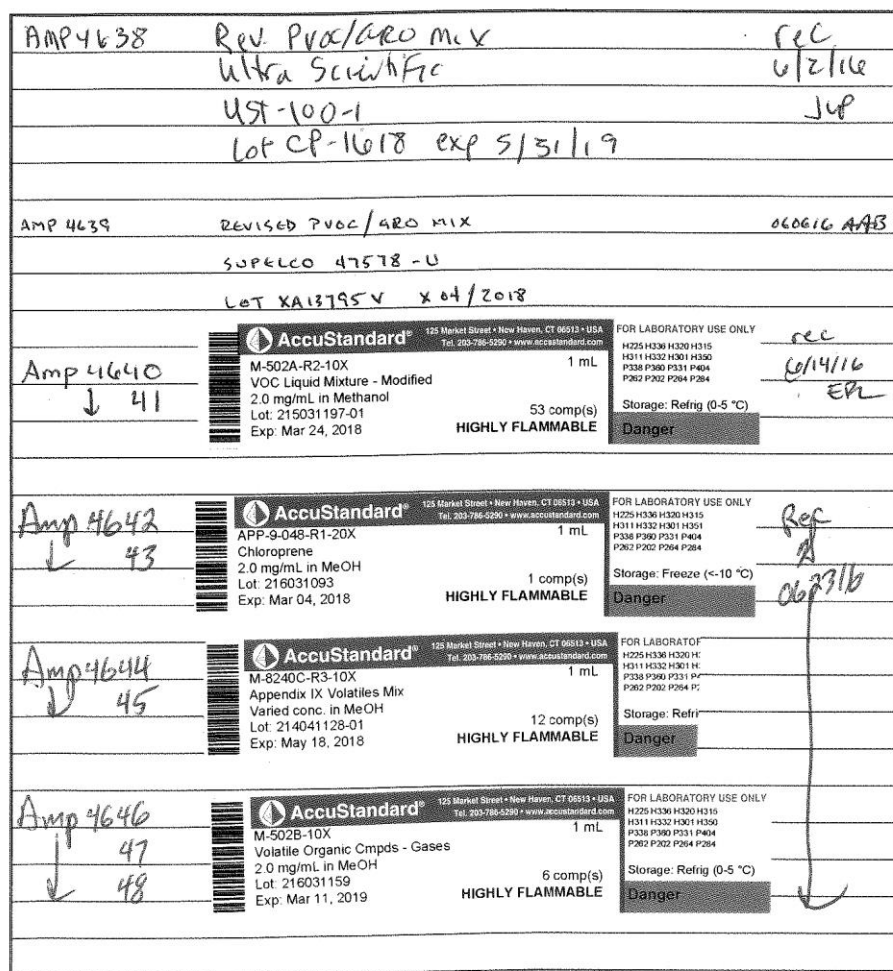 AMP 4638 Rev. PVOC/GRO MIX rec
Ultra Scientific 6/2/16
UST-100-1 JVP
Lot CP-1618 exp 5/31/19
AMP 4639 REVISED PVOC/GRO MIX 060616 AAB
SUPELCO 47578-U
LOT XA13795V X 04/2018
Amp 4640 rec
↓ 41 6/14/16
EPL
AccuStandard® 125 Market Street • New Haven, CT 06513 • USA
Tel. 203-786-5290 • www.accustandard.com
M-502A-R2-10X 1 mL
VOC Liquid Mixture - Modified
2.0 mg/mL in Methanol
Lot: 215031197-01 53 comp(s)
Exp: Mar 24, 2018 HIGHLY FLAMMABLE
FOR LABORATORY USE ONLY
H225 H336 H320 H315
H311 H332 H301 H350
P338 P360 P331 P404
P262 P202 P264 P284
Storage: Refrig (0-5 °C)
Danger
Amp 4642 Rec
↓ 43
062316
AccuStandard® 125 Market Street • New Haven, CT 06513 • USA
Tel. 203-786-5290 • www.accustandard.com
APP-9-048-R1-20X 1 mL
Chloroprene
2.0 mg/mL in MeOH
Lot: 216031093 1 comp(s)
Exp: Mar 04, 2018 HIGHLY FLAMMABLE
FOR LABORATORY USE ONLY
H225 H336 H320 H315
H311 H332 H301 H351
P338 P360 P331 P404
P262 P202 P264 P284
Storage: Freeze (<-10 °C)
Danger
Amp 4644
↓ 45
AccuStandard® 125 Market Street • New Haven, CT 06513 • USA
Tel. 203-786-5290 • www.accustandard.com
M-8240C-R3-10X 1 mL
Appendix IX Volatiles Mix
Varied conc. in MeOH
Lot: 214041128-01 12 comp(s)
Exp: May 18, 2018 HIGHLY FLAMMABLE
FOR LABORATOR
H225 H336 H320 H
H311 H332 H301 H
P338 P360 P331 P
P262 P202 P264 P
Storage: Refri
Danger
Amp 4646
47
↓ 48
AccuStandard® 125 Market Street • New Haven, CT 06513 • USA
Tel. 203-786-5290 • www.accustandard.com
M-502B-10X 1 mL
Volatile Organic Cmpds - Gases
2.0 mg/mL in MeOH
Lot: 216031159 6 comp(s)
Exp: Mar 11, 2019 HIGHLY FLAMMABLE
FOR LABORATORY USE ONLY
H225 H336 H320 H315
H311 H332 H301 H350
P338 P360 P331 P404
P262 P202 P264 P284
Storage: Refrig (0-5 °C)
Danger